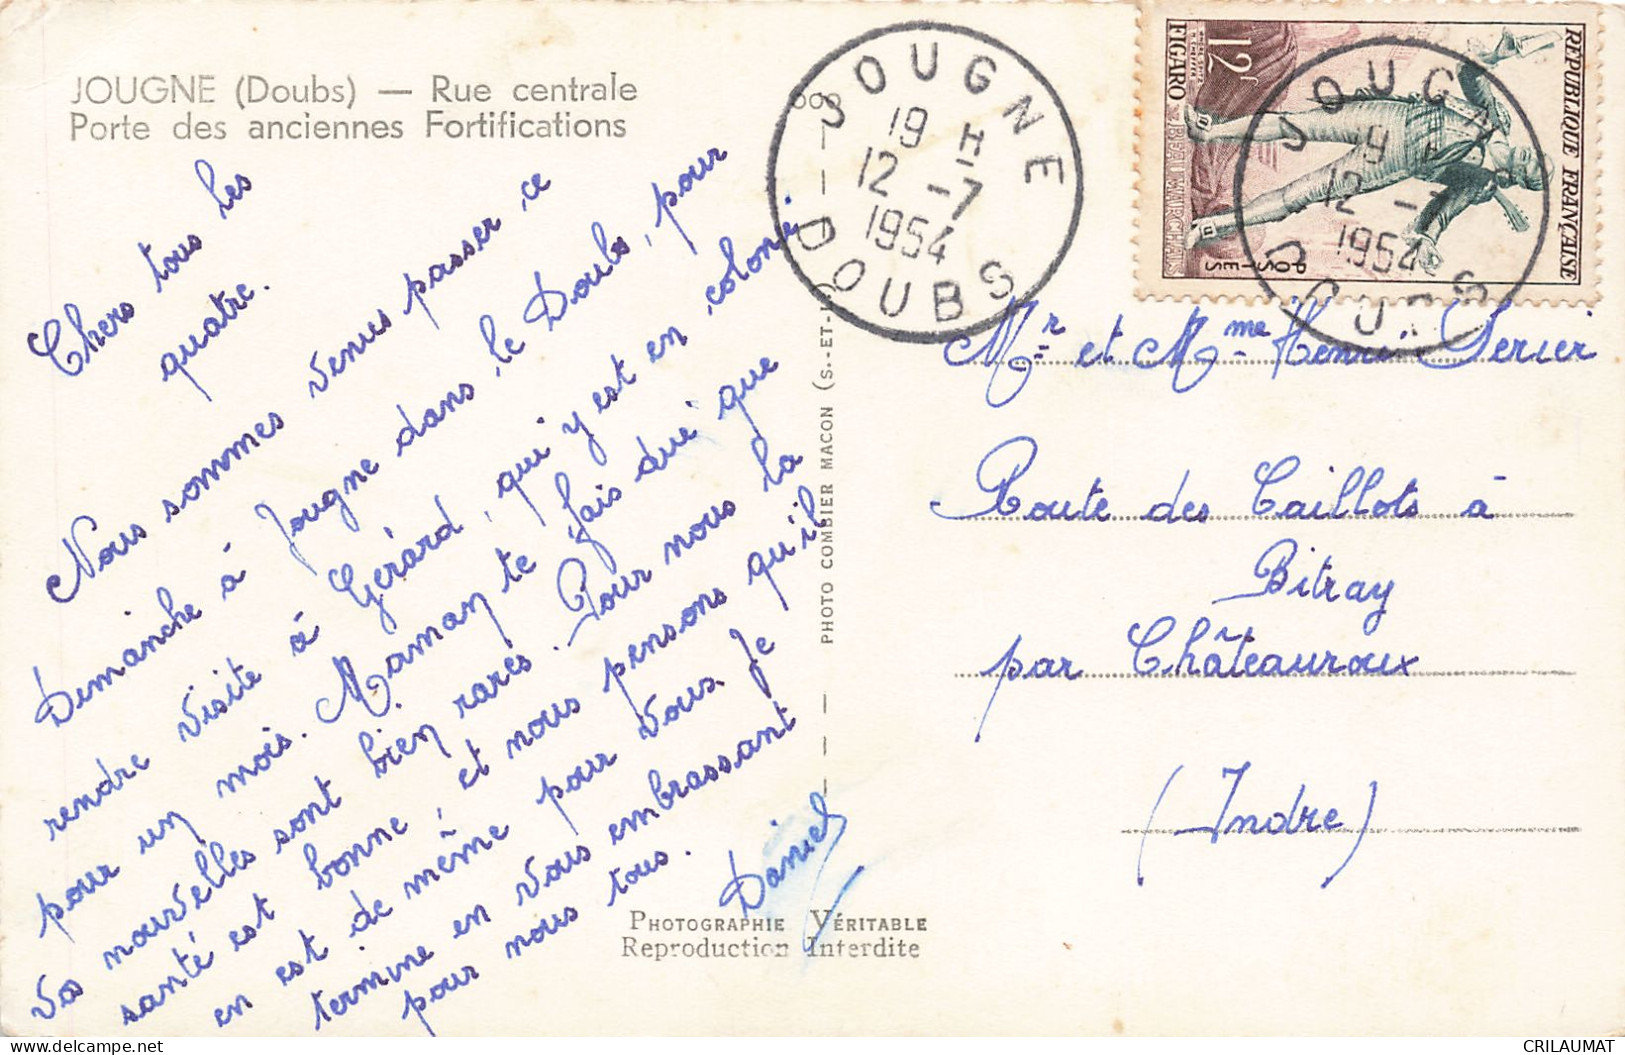 JOUGNE (Doubs) — Rue centrale
Porte des anciennes Fortifications
Chers tous les
quatre.
Nous sommes venus passer ce
Dimanche à Jougne dans le Doubs, pour
rendre visite à Gérard, qui y est en coloni.
pour un mois. Maman te fais dui que
vos nouvelles sont bien rares. Pour nous la
santé est bonne et nous pensons qu'il
en est de même pour vous. Je
termine en vous embrassant
pour nous tous.
Daniel
PHOTOGRAPHIE VÉRITABLE
Reproduction Interdite
PHOTO COMBIER MACON (S.-ET-L.)
JOUGNE
19 H
12 -7
1954
DOUBS
RÉPUBLIQUE FRANÇAISE
POSTES
12F
FIGARO - BEAUMARCHAIS
JOUGNE
19 H
12 -7
1954
DOUBS
Mr et Mme Henri Serier
Route des Caillots à
Bitray
par Châteauroux
(Indre)
CRILAUMAT